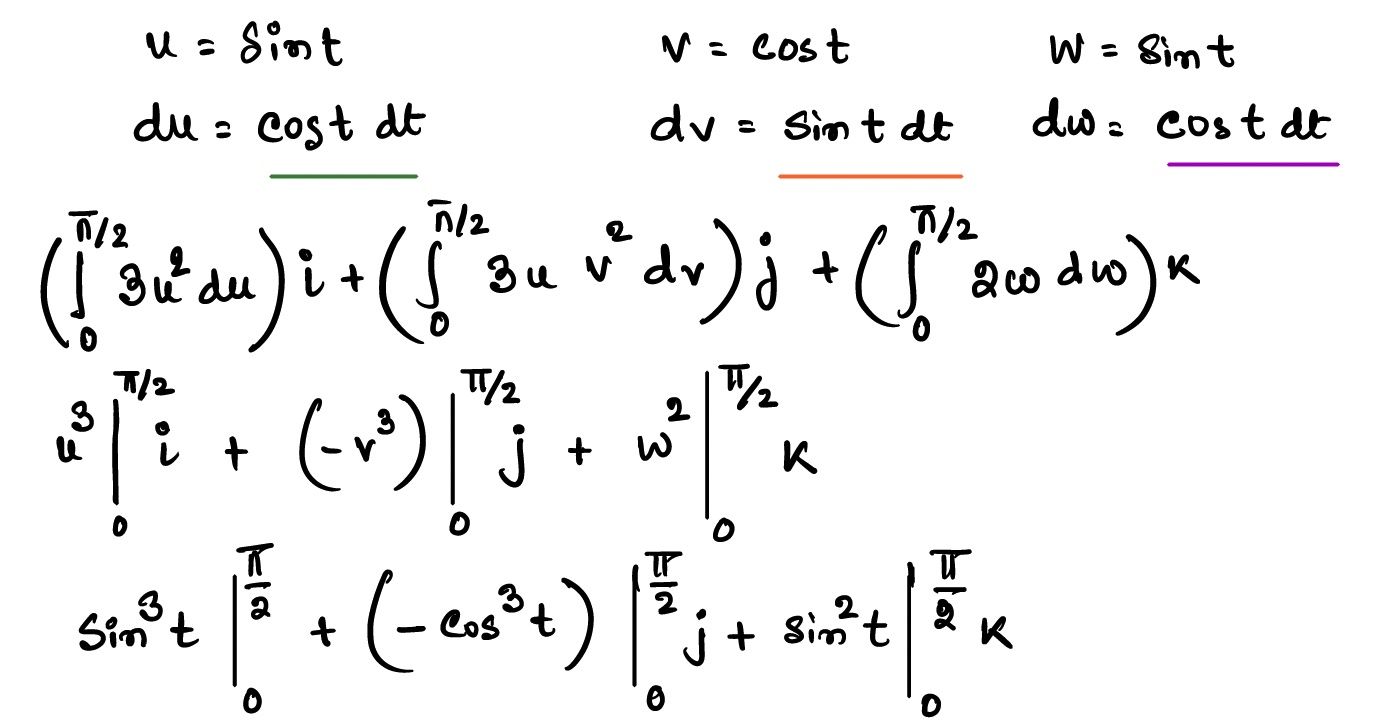 u = sint v = cost w = sint
du = cost dt dv = sint dt dw = cost dt
(∫₀^π/2 3u² du) i + (∫₀^π/2 3u v² dv) j + (∫₀^π/2 2w dw) k
u³ |₀^π/2 i + (-v³) |₀^π/2 j + w² |₀^π/2 k
sin³t |₀^π/2 + (-cos³t) |₀^π/2 j + sin²t |₀^π/2 k